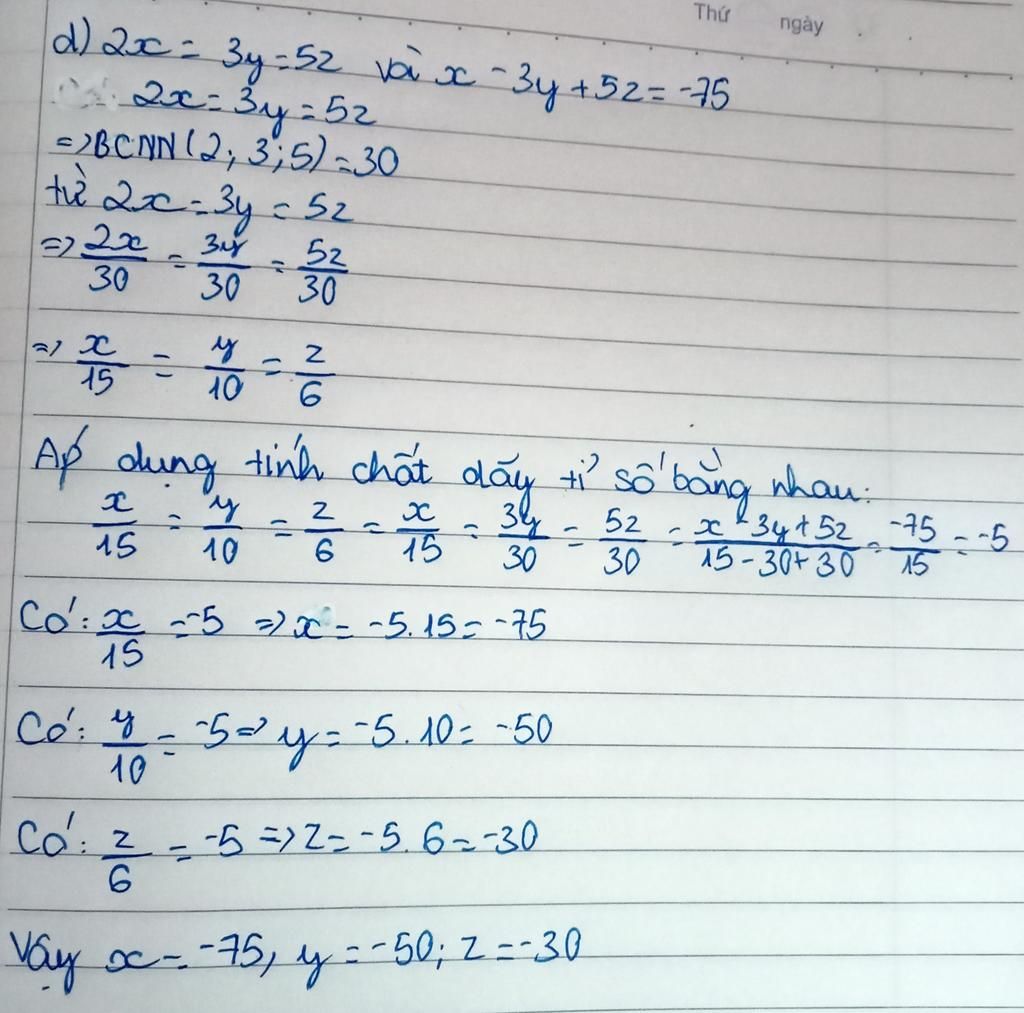 Thứ ngày
d) 2x = 3y = 5z và x - 3y + 5z = -75
2x = 3y = 5z
=> BCNN(2; 3; 5) = 30
từ 2x = 3y = 5z
=> 2x/30 = 3y/30 = 5z/30
=> x/15 = y/10 = z/6
Áp dụng tính chất dãy tỉ số bằng nhau:
x/15 = y/10 = z/6 = x/15 = 3y/30 = 5z/30 = x - 3y + 5z/15 - 30 + 30 = -75/15 = -5
Có: x/15 = -5 => x = -5.15 = -75
Có: y/10 = -5 => y = -5.10 = -50
Có: z/6 = -5 => z = -5.6 = -30
Vậy x = -75, y = -50; z = -30